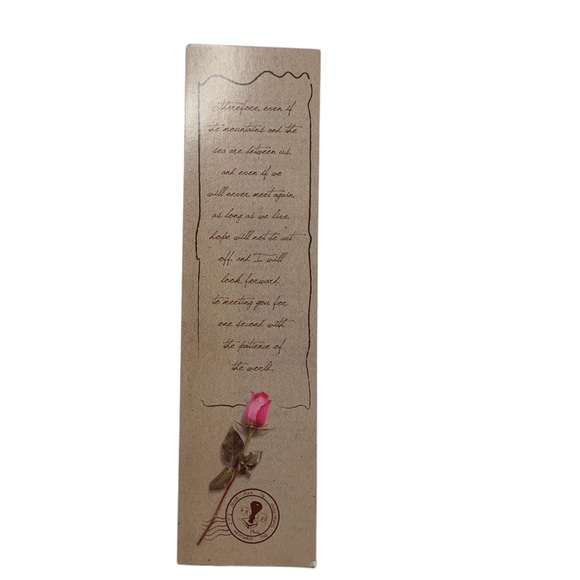 therefore, even if
the mountains and the
sea are between us,
and even if we
will never meet again
as long as we live,
hope will not be cut
off, and I will
look forward
to meeting you for
one second with
the patience of
the world.